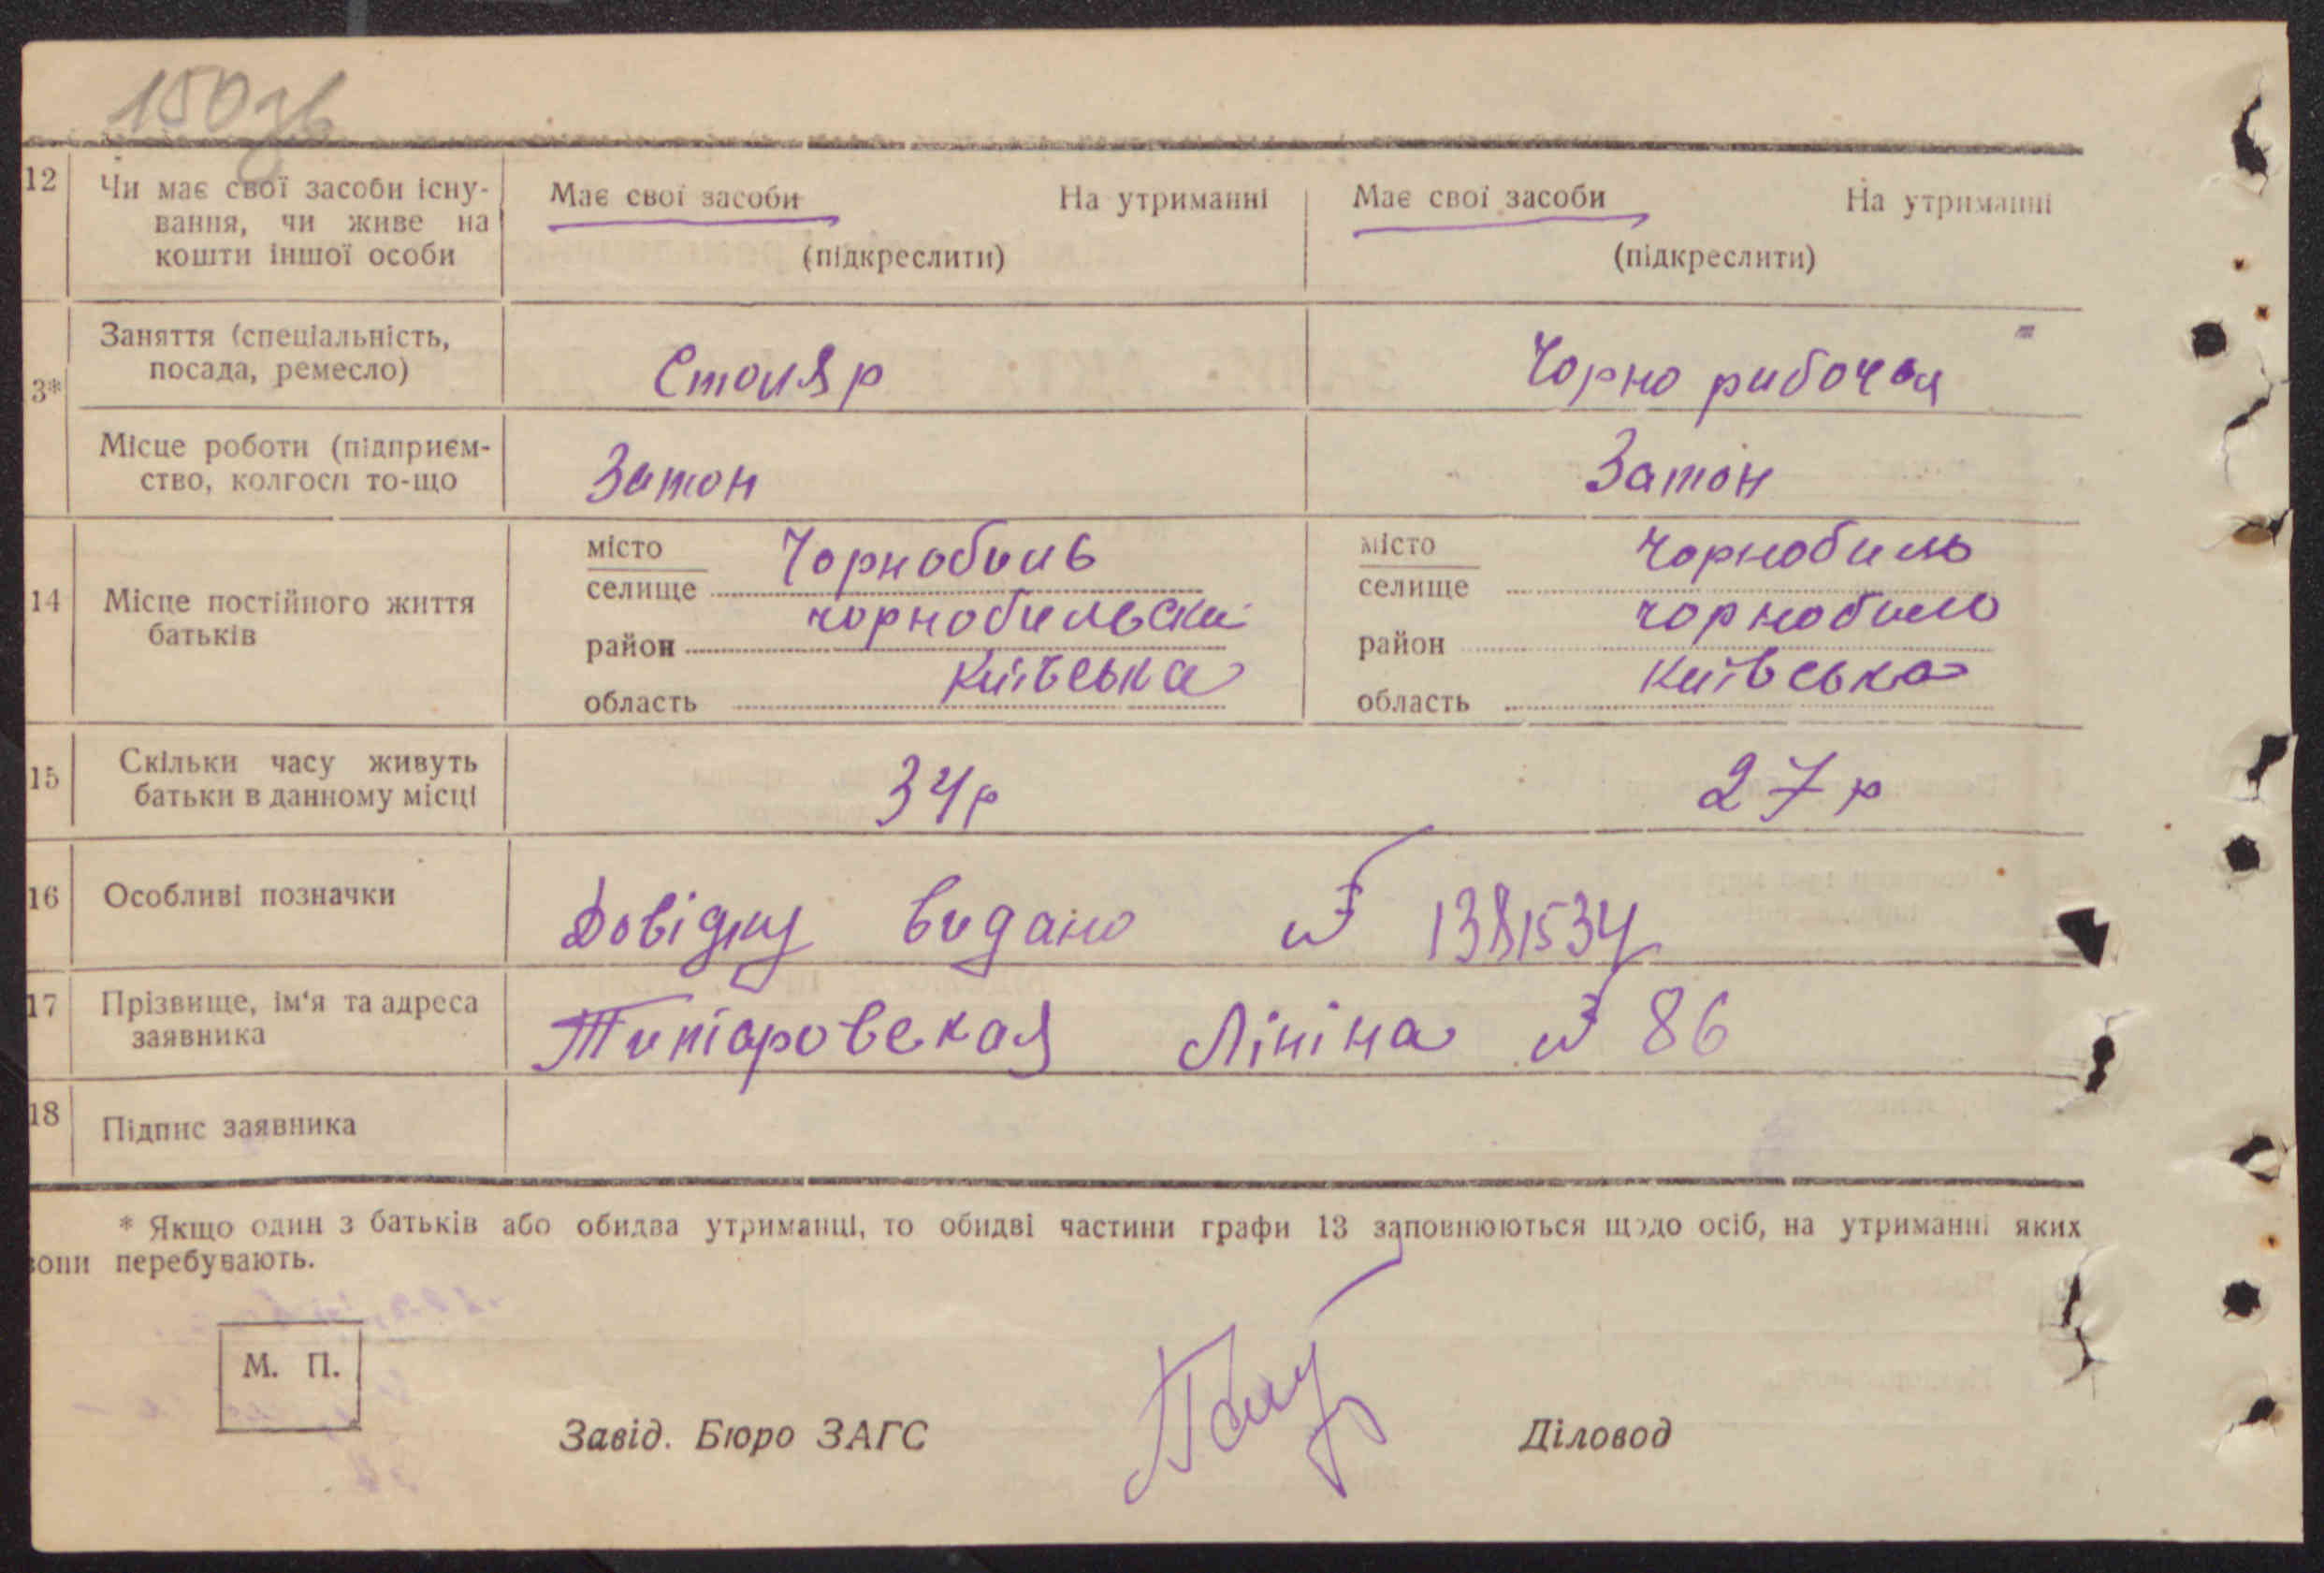 150зв
12 Чи має свої засоби існу- Має свої засоби На утриманні Має свої засоби На утриманні
вання, чи живе на
кошти іншої особи (підкреслити) (підкреслити)
Заняття (спеціальність,
посада, ремесло) Столяр Чорно рибочая
3*
Місце роботи (підприєм-
ство, колгосп то-що Затон Затон
місто Чорнобиль місто Чорнобиль
селище селище
14 Місце постійного життя
батьків
район чорнобильски район чорнобиль
область київська область київська
15 Скільки часу живуть
батьки в данному місці 34р 27р
16 Особливі позначки Довідку видано № 1381534
17 Прізвище, ім'я та адреса
заявника Титаровская Лініна № 86
18 Підпис заявника
* Якщо один з батьків або обидва утриманці, то обидві частини графи 13 заповнюються щодо осіб, на утриманні яких
вони перебувають.
М. П.
Завід. Бюро ЗАГС Діловод